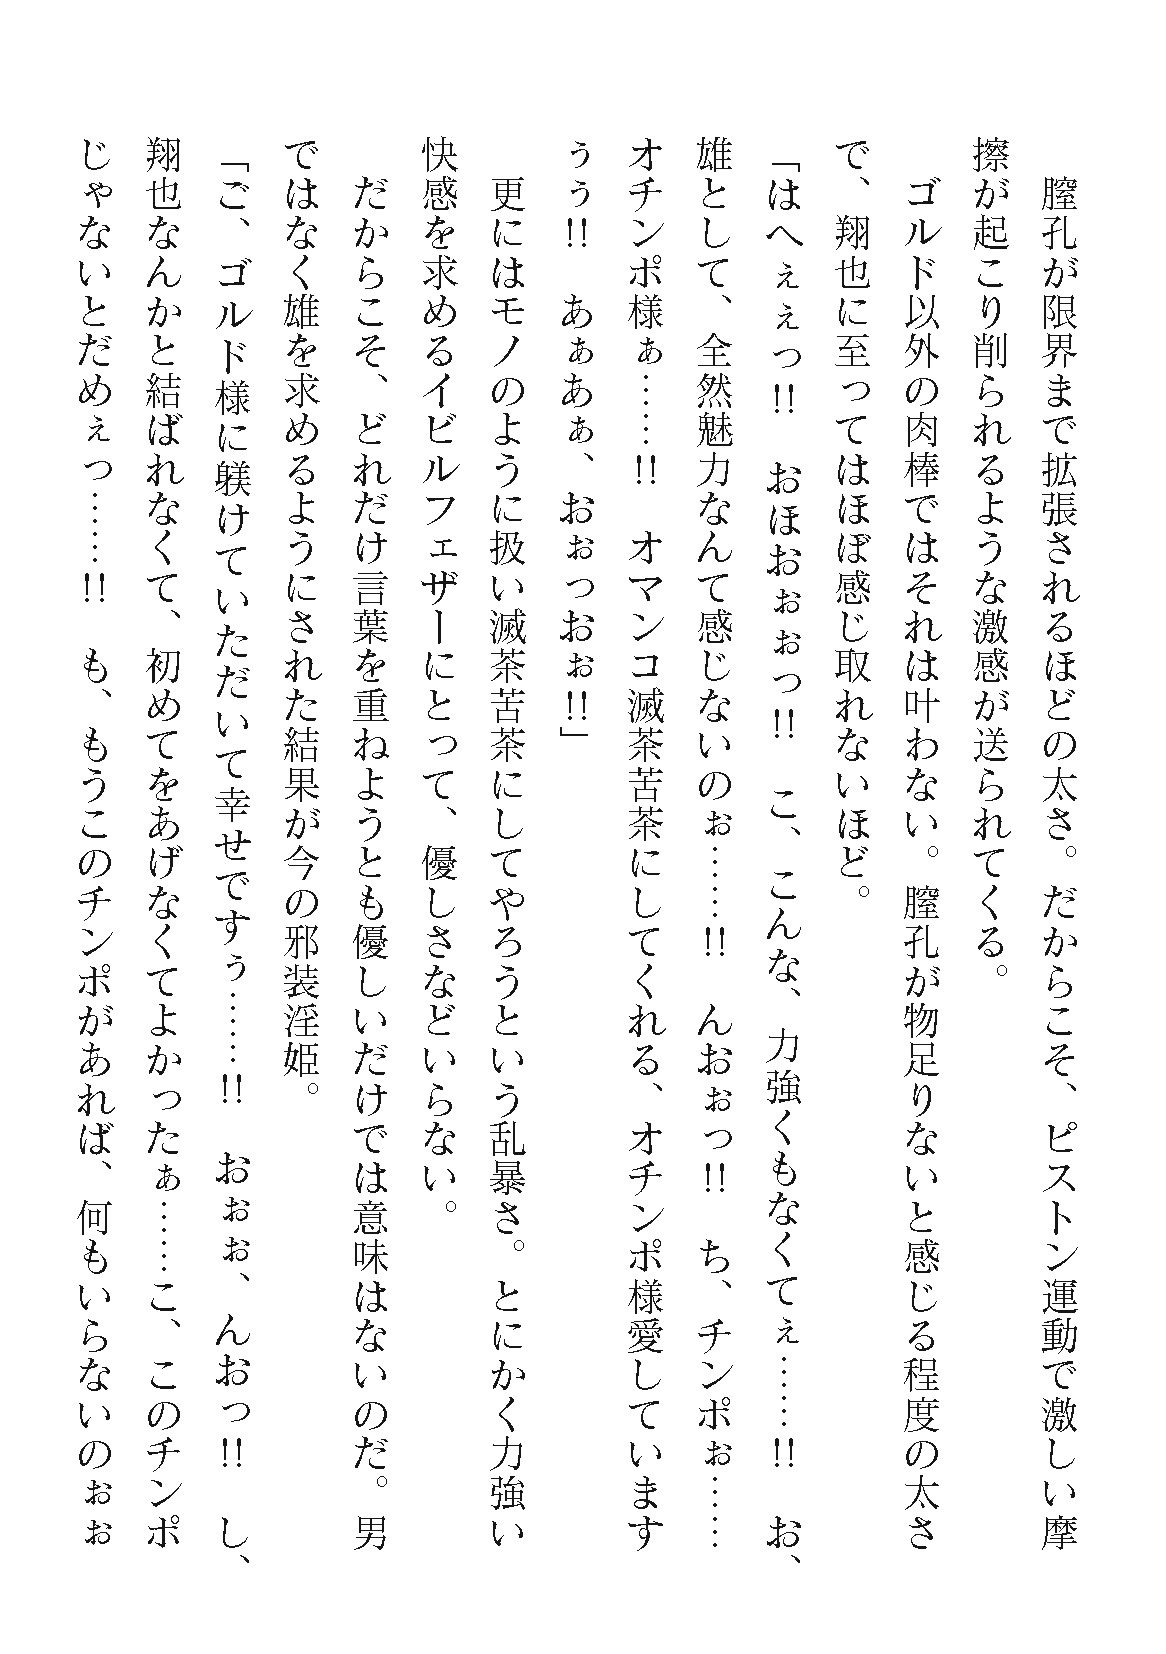 膣孔が限界まで拡張されるほどの太さ。だからこそ、ピストン運動で激しい摩
擦が起こり削られるような激感が送られてくる。
　ゴルド以外の肉棒ではそれは叶わない。膣孔が物足りないと感じる程度の太さ
で、翔也に至ってはほぼ感じ取れないほど。
「はへぇぇっ!!　おほおぉぉっ!!　こ、こんな、力強くもなくてぇ……!!　お、
雄として、全然魅力なんて感じないのぉ……!!　んおぉっ!!　ち、チンポぉ……
オチンポ様ぁ……!!　オマンコ滅茶苦茶にしてくれる、オチンポ様愛しています
ぅぅ!!　あぁあぁ、おぉっおぉ!!」
　更にはモノのように扱い滅茶苦茶にしてやろうという乱暴さ。とにかく力強い
快感を求めるイビルフェザーにとって、優しさなどいらない。
　だからこそ、どれだけ言葉を重ねようとも優しいだけでは意味はないのだ。男
ではなく雄を求めるようにされた結果が今の邪装淫姫。
「ご、ゴルド様に躾けていただいて幸せですぅ……!!　おぉぉ、んおっ!!　し、
翔也なんかと結ばれなくて、初めてをあげなくてよかったぁ……こ、このチンポ
じゃないとだめぇっ……!!　も、もうこのチンポがあれば、何もいらないのぉぉ